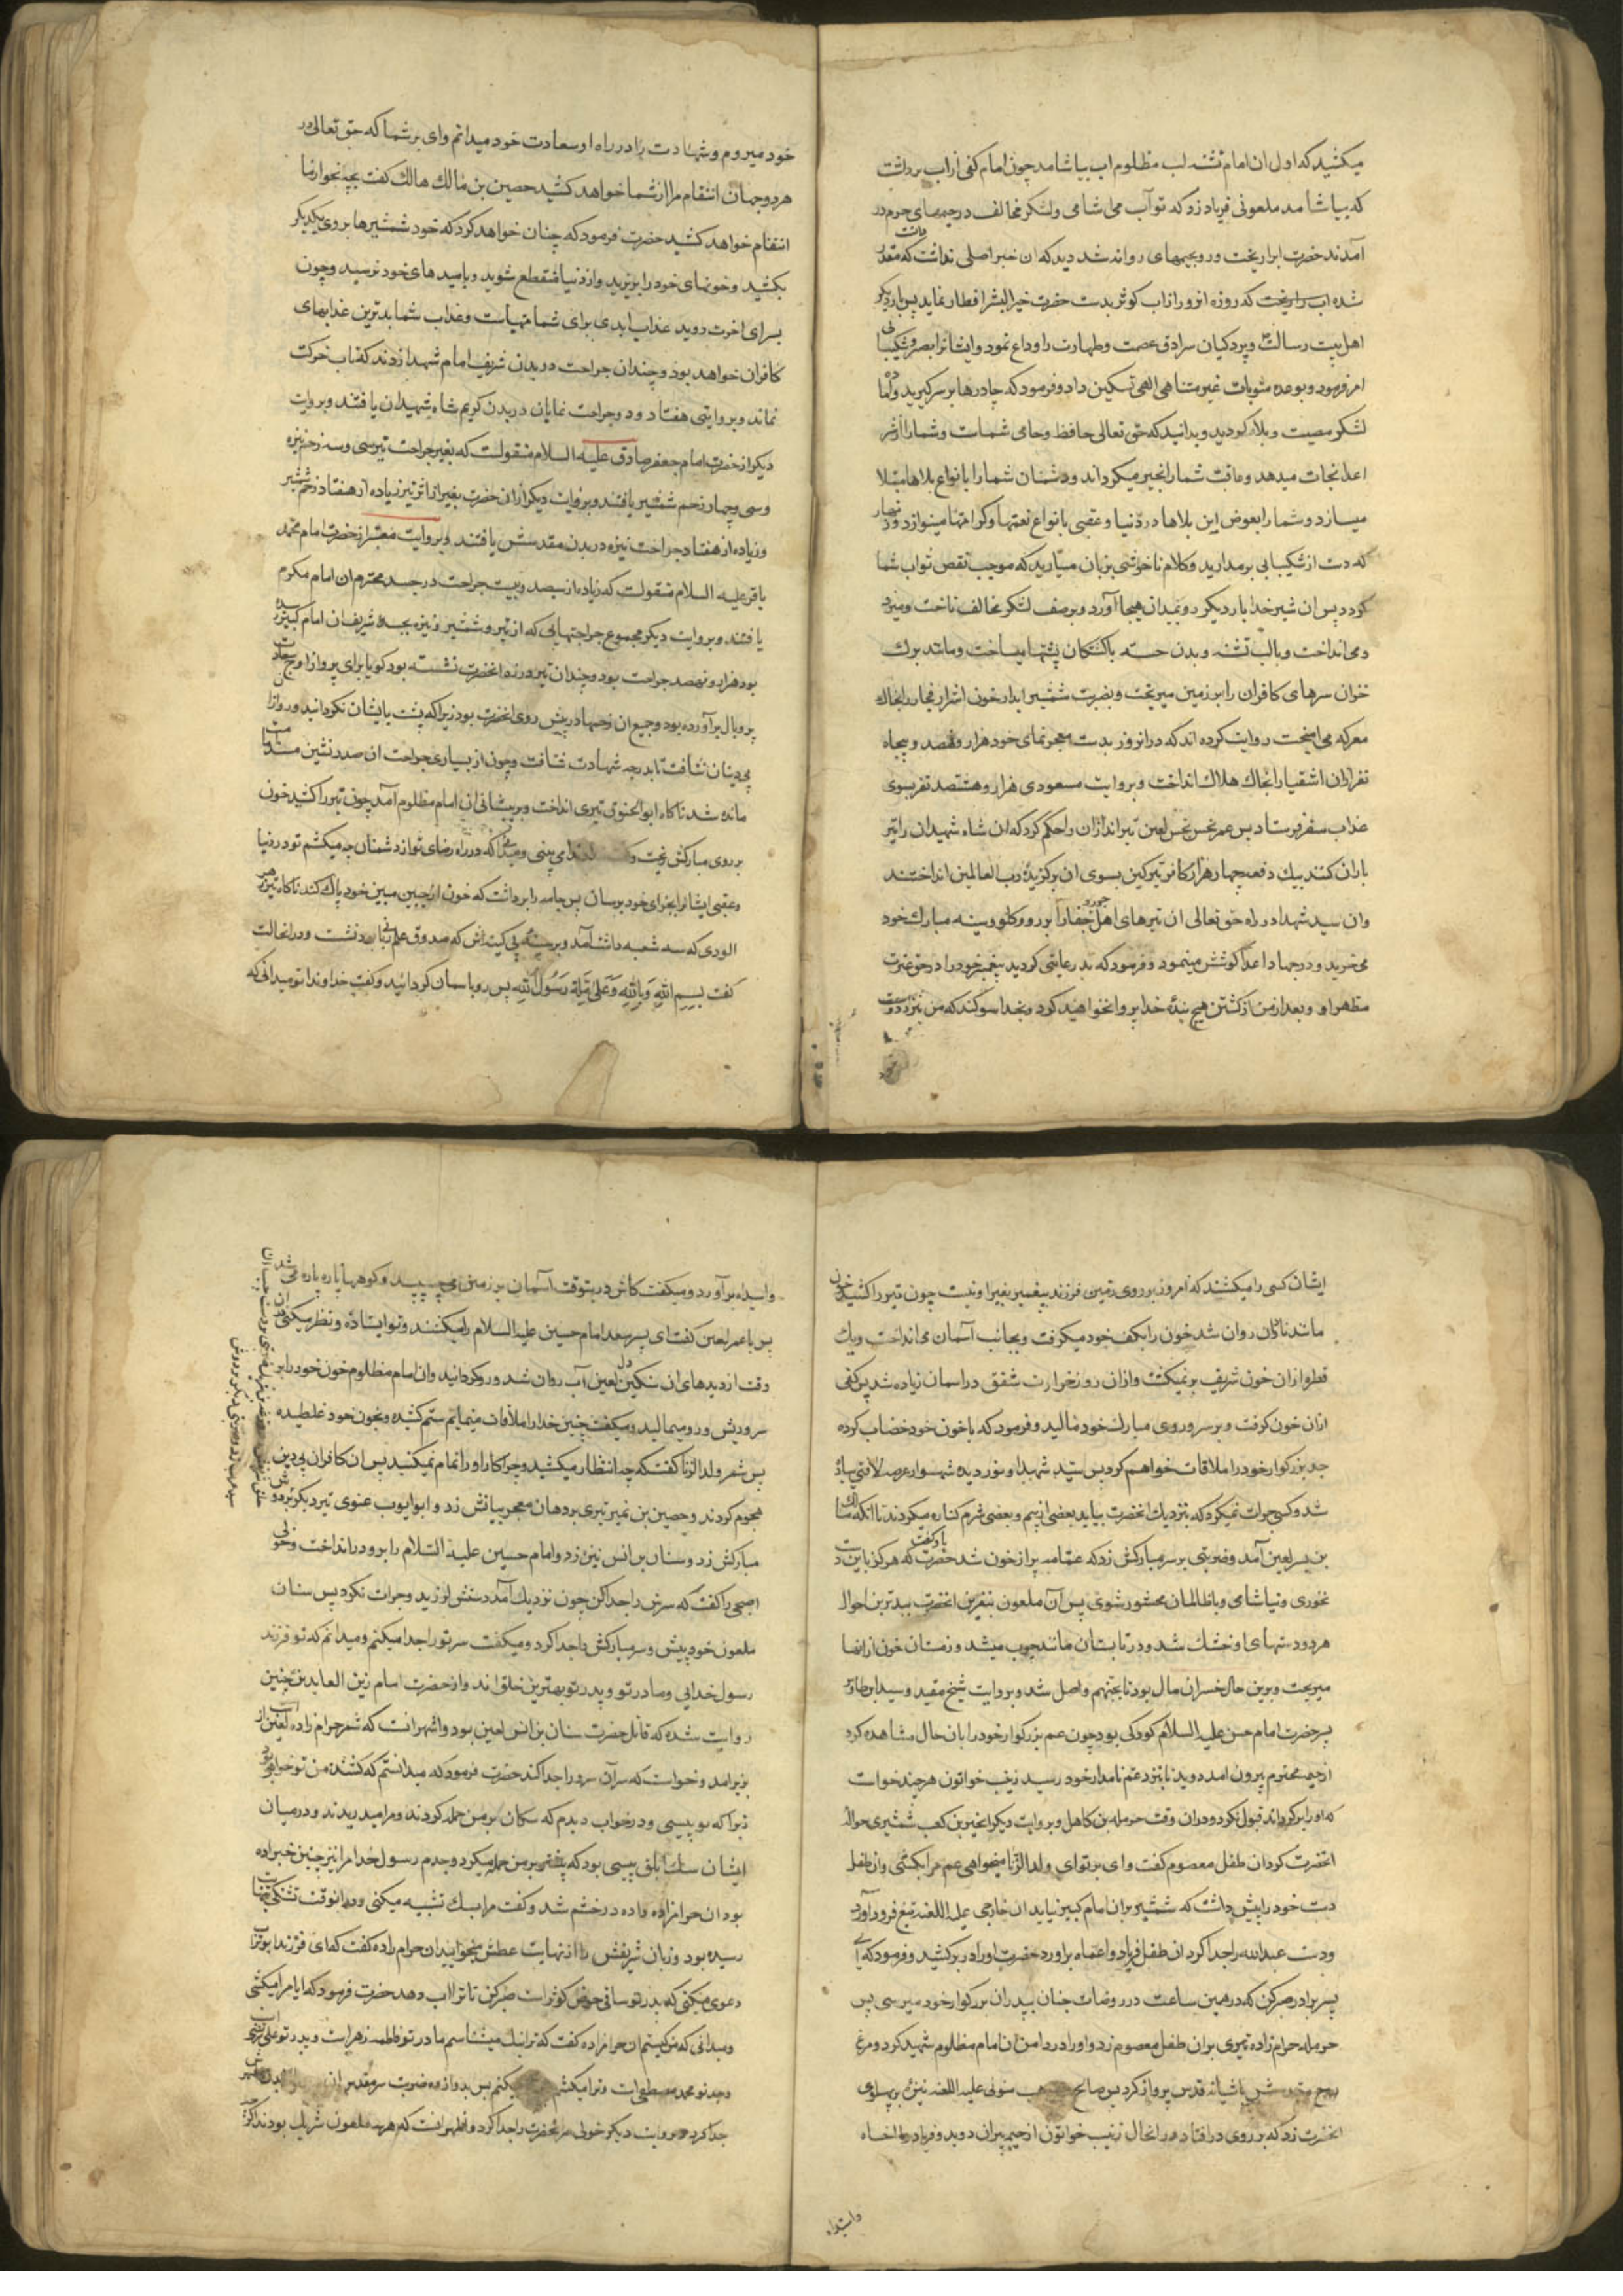 میکشید که اول ان امام تشنه لب مظلوم اب بیاشامد چون امام کفی از اب برداشت
که بیاشامد ملعونی فریاد زد که تو آب می اشامی و لشکر مخالف در خیمهای حرم در
آمدند حضرت اب را ریخت و رو بخیمهای روانه شد دید که ان خبر اصلی نداشت که مقدر
شده اب را ریخت که روزه انروز را از اب کوثر بدست حضرت خیر البشر افطار نماید پس بار دیکر
اهل بیت رسالت و پردکیان سرادق عصمت و طهارت را وداع نمود و ایشانرا بصبر و شکیبایی
امر فرمود و بوعده مثوبات غیر متناهی الهی تسکین داد و فرمود که چادرها بر سر کیرید و آماده
لشکر مصیبت و بلاء کردید و بدانید که حق تعالی حافظ و حامی شماست و شما را از شر
اعدا نجات میدهد و عاقبت شما را بخیر میکرداند و دشمنان شما را بانواع بلاها مبتلا
میسازد و شما را بعوض این بلاها در دنیا و عقبی بانواع نعمتها و کرامتها مینوازد و زنهار
که دست از شکیبایی برمدارید و کلام ناخوشی بزبان میارید که موجب نقص ثواب شما
کردد پس ان شیر خدا بار دیکر رو بمیدان هیجا آورد و بر صف لشکر مخالف تاخت و میزد
و می انداخت و با لب تشنه و بدن خسته با کشتکان پشتها میساخت و مانند برک
خزان سرهای کافران را بر زمین میریخت و بضربت شمشیر ابدار خون اشرار فجار را بخاک
معرکه می امیخت روایت کرده اند که در انروز بدست معجز نمای خود هزار و نهصد و پنجاه
نفر از ان اشقیا را بخاک هلاک انداخت و بروایت مسعودی هزار و هشتصد نفر بسوی
عذاب سقر فرستاد پس عمر نحس نجس لعین تیراندازان را حکم کرد که ان شاه شهیدان را تیر
باران کنند بیک دفعه چهار هزار کافر تیر کین بسوی ان برکزیدهٔ رب العالمین انداختند
وان سید شهدا در راه حق تعالی ان تیرهای اهل جور و جفا را بر رو و کلو و سینه مبارک خود
می خرید و در جهاد اعدا کوشش مینمود و فرمود که بد رعایتی کردید پیغمبر خود را در حق عترت
مطهر او و بعد از من از کشتن هیچ بندهٔ خدا پروا نخواهید کرد و بخدا سوکند که من بنزد دوست
خود میروم و شهادت را در راه او سعادت خود میدانم وای بر شما که حق تعالی در
هر دو جهان انتقام مرا از شما خواهد کشید حصین بن مالک هالک کفت بچه نحو از ما
انتقام خواهد کشید حضرت فرمود که چنان خواهد کرد که خود شمشیرها بروی یکدیکر
بکشید و خونهای خود را بریزید و از دنیا منقطع شوید و بامیدهای خود نرسید و چون
بسرای اخرت روید عذاب ابدی برای شما مهیاست و عذاب شما بدترین عذابهای
کافران خواهد بود و چندان جراحت در بدن شریف امام شهدا زدند که تاب حرکت
نماند و بروایتی هفتاد و دو جراحت نمایان در بدن کریم شاه شهیدان یافتند و بروایت
دیکر از حضرت امام جعفر صادق علیه السلام منقولست که بغیر جراحت تیر سی و سه زخم نیزه
و سی و چهار زخم شمشیر یافتند و بروایت دیکر از ان حضرت بغیر از اثر تیر زیاده از هفتاد زخم شمشیر
و زیاده از هفتاد جراحت نیزه در بدن مقدسش یافتند و بروایت معتبر از حضرت امام محمد
باقر علیه السلام منقولست که زیاده از سیصد و بیست جراحت در جسد محترم ان امام مکرم
یافتند و بروایت دیکر مجموع جراحتهایی که از تیر و شمشیر و نیزه بجسد شریف ان امام کبیر رسیده
بود هزار و نهصد جراحت بود و چندان تیر در زره انحضرت نشسته بود کویا برای پرواز اوج سعادت
پر و بال برآورده بود و جمیع ان زخمها در پیش روی انحضرت بود زیرا که پشت با یشان نکردانید و رو از ان
بی دینان نتافت تا بدرجه شهادت شتافت و چون از بسیاری جراحت ان صدر نشین مسند امامت
مانده شد ناکاه ابو الحنوق تیری انداخت و بر پیشانی ان امام مظلوم آمد چون تیر را کشید خون
بر روی مبارکش ریخت و کفت می بینی و میدانی که در راه رضای تو از دشمنان چه میکشم تو در دنیا
و عقبی ایشانرا بجزای خود برسان پس جامه را برداشت که خون از جبین مبین خود پاک کند ناکاه تیر زهر
الودی که سه شعبه داشت آمد و بر سینه بی کینه اش که صندوق علم ربانی بود نشست و در انحالت
کفت بسم الله وبالله وعلی ملة رسول الله پس رو باسمان کردانید و کفت خداوندا تو میدانی که
ایشان کسی را میکشند که امروز بر روی زمین فرزند پیغمبر بغیر او نیست چون تیر را کشید خون
مانند ناودان روان شد خون را بکف خود میکرفت و بجانب آسمان می انداخت و یک
قطره از ان خون شریف بر نمیکشت و از ان روز حمرت شفق در اسمان زیاده شد پس کفی
از ان خون کرفت و بر سر و روی مبارک خود مالید و فرمود که با خون خود خضاب کرده
جد بزرکوار خود را ملاقات خواهم کرد پس سید شهدا و نور دیده شهسوار عرصه لافتی پیاده
شد و کسی جرات نمیکرد که بنزدیک انحضرت بیاید بعضی از بیم و بعضی شرم کناره میکردند تا انکه مالک
بن یسر لعین آمد و ضربتی بر سر مبارکش زد که عمامه پر از خون شد حضرت باو کفت که هرکز باین دست
نخوری و نیاشامی و با ظالمان محشور شوی پس آن ملعون بنفرین انحضرت ببدترین احوال
هر دو دستهای او خشک شد و در تابستان مانند چوب میشد و زمستان خون از انها
میریخت و برین حال خسران مال بود تا بجهنم واصل شد و بروایت شیخ مفید و سید ابن طاوس
پسر حضرت امام حسن علیه السلام کودکی بود چون عم بزرکوار خود را بان حال مشاهده کرد
از خیمه محترم بیرون امد دوید تا بنزد عم نامدار خود رسید زینب خواتون هر چند خواست
که او را برکرداند قبول نکرد و در ان وقت حرمله بن کاهل و بروایت دیکر ابجر بن کعب شمشیری حواله
انحضرت کرد ان طفل معصوم کفت وای بر تو ای ولد الزنا میخواهی عم مرا بکشی وان طفل
دست خود را پیش داشت که شمشیر بر ان امام کبیر نیاید ان خارجی علیه اللعنه تیغ فرود آورد
و دست عبد الله را جدا کرد ان طفل فریاد وا عماه براورد حضرت او را در بر کشید و فرمود که ای
پسر برادر صبر کن که در همین ساعت در روضات جنان بپدران بزرکوار خود میرسی پس
حرمله حرام زاده تیری بران طفل معصوم زد و او را در دامن ان امام مظلوم شهید کرد و مرغ
روح مقدسش باشیانه قدس پرواز کرد پس صالح بن وهب مزنی علیه اللعنه نیزهٔ بر پهلوی
انحضرت زد که بر روی در افتاد در انحال زینب خواتون از خیمه بیرون دوید و فریاد وا اخاه
واسیداه
واسیداه برآورد و میکفت کاش درینوقت آسمان بر زمین می چسپید و کوهها پاره پاره می شد
پس با عمر لعین کفت ای پسر سعد امام حسین علیه السلام را میکشند و تو ایستاده و نظر میکنی دران
وقت از دیدهای ان سنکین دل لعین آب روان شد و رو کردانید وان امام مظلوم خون خود را بر
سر و ریش و رو میمالید و میکفت چنین خدا را ملاقات مینمایم ستم کشیده و بخون خود غلطیده
پس شمر ولد الزنا کفت که چه انتظار میکشید و چرا کار او را تمام نمیکنید پس ان کافران بی دین
هجوم کردند و حصین بن نمیر تیری بر دهان معجز بیانش زد و ابو ایوب غنوی تیر دیکر بر دوش
مبارکش زد و سنان بن انس نیزهٔ زد و امام حسین علیه السلام را برو در انداخت و خولی
اصبحی را کفت که سرش را جدا کن چون نزدیک آمد دستش لرزید و جرات نکرد پس سنان
ملعون خود پیش و سر مبارکش را جدا کرد و میکفت سر تو را جدا میکنم و میدانم که تو فرزند
رسول خدایی و مادر تو و پدر تو بهترین خلق اند و از حضرت امام زین العابدین چنین
روایت شده که قاتل حضرت سنان بن انس لعین بود و اشهر انست که شمر حرام زاده لعین از
بزیر امد و خواست که سر آن سرور را جدا کند حضرت فرمود که میدانستم که کشنده من تو خواهی بود
زیرا که تو پیسی و در خواب دیدم که سکان بر من حمله کردند و مرا میدریدند و در میان
ایشان سک ابلق پیسی بود که بیشتر بر من حمله میکرد و جدم رسول خدا مرا نیز چنین خبر داده
بود ان حرامزاده در خشم شد و کفت مرا بسک تشبیه میکنی و در انوقت تشنکی بنهایت
رسیده بود و زبان شریفش را از نهایت عطش میخایید ان حرام زاده کفت که ای فرزند ابو تراب
دعوی میکنی که پدر تو ساقی حوض کوثر است صبر کن تا ترا اب دهد حضرت فرمود که ایا مرا میکشی
و میدانی که من کیستم ان حرامزاده کفت که ترا نیک میشناسم مادر تو فاطمه زهراست و پدر تو علی مرتضی است
و جد تو محمد مصطفی است و ترا میکشم نمیکنم پس بدوازده ضربت سر مقدس ان
جدا کرد و بروایت دیکر خولی سر انحضرت را جدا کرد و اظهر انست که هر سه ملعون شریک بودند